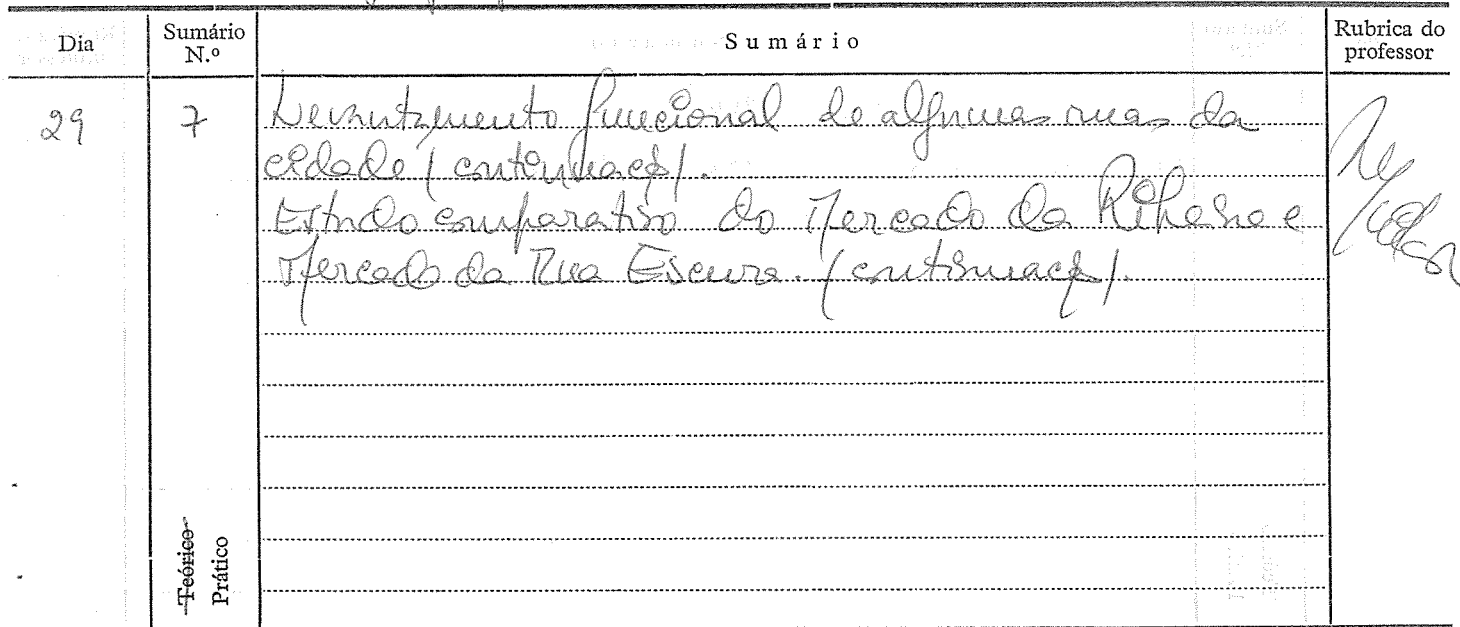 Dia
Sumário N.º
Sumário
Rubrica do professor
29
7
Levantamento funcional de algumas ruas da
cidade (continuaçã).
Estudo comparativo do Mercado da Ribeira e
Mercado da Rua Escura. (continuaçã).
Teórico
Prático